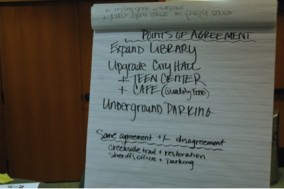 POINTS OF AGREEMENT
EXPAND LIBRARY
UPGRADE CITY HALL
+ TEEN CENTER
+ CAFE (Quality Food)
UNDERGROUND PARKING
Some agreement +/- disagreement
creekside trail + restoration
sheriff's office + parking